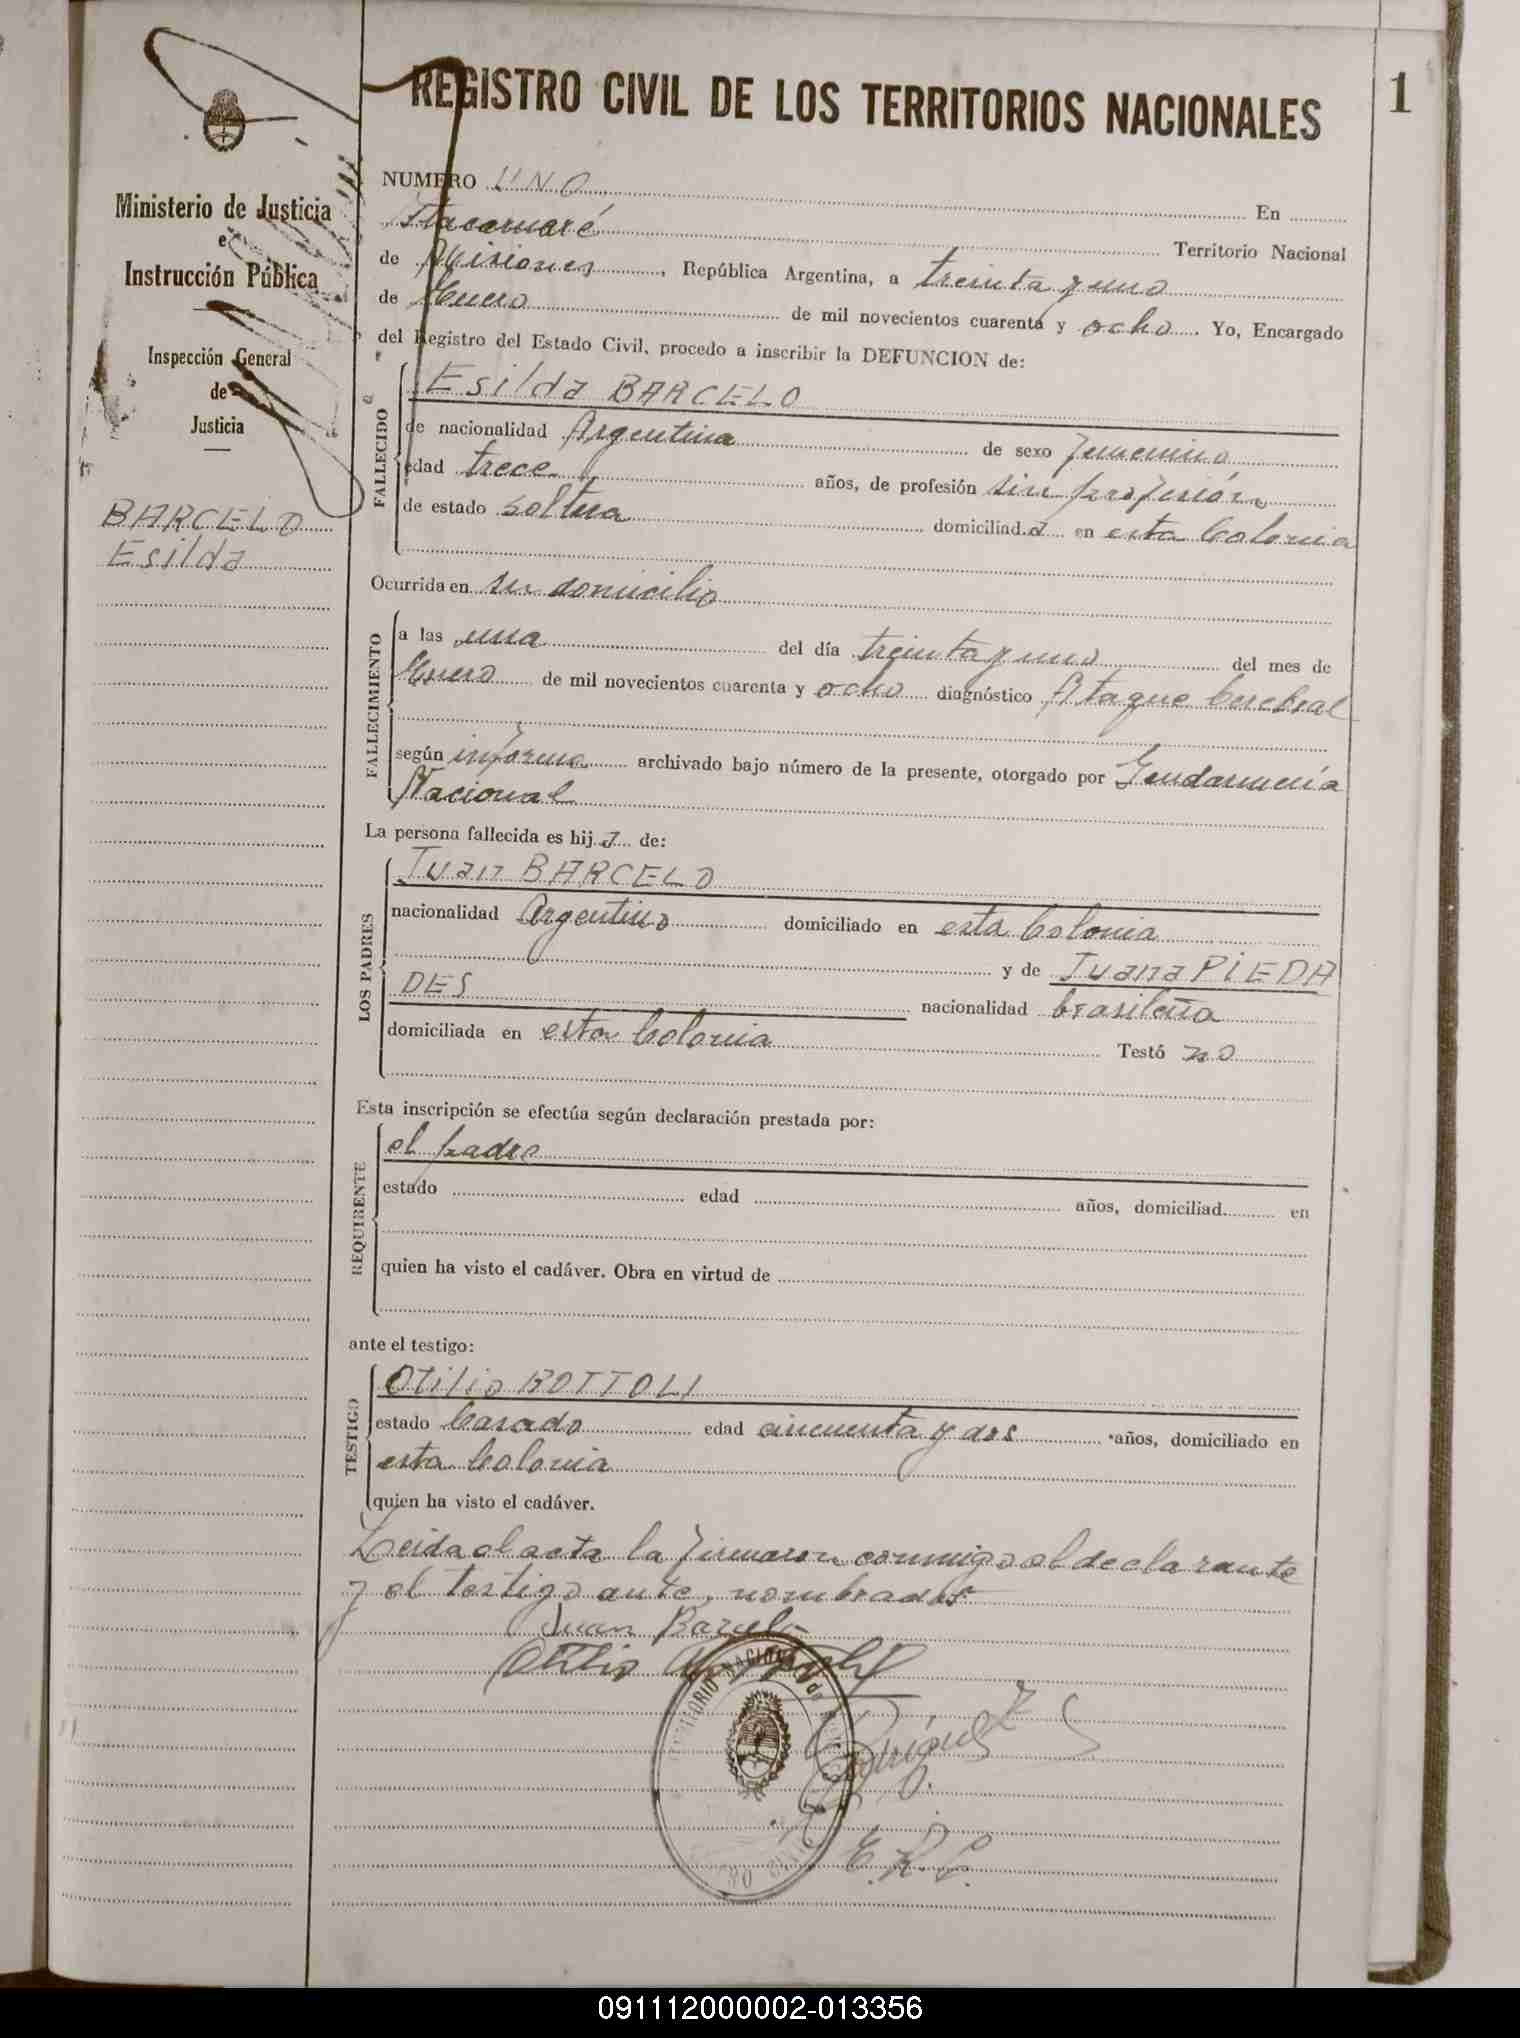 REGISTRO CIVIL DE LOS TERRITORIOS NACIONALES
1
Ministerio de Justicia
e
Instrucción Pública
Inspección General
de
Justicia
BARCELO
Esilda
NUMERO UNO En
Itacaruaré Territorio Nacional
de Misiones, República Argentina, a treinta y uno
de Enero de mil novecientos cuarenta y ocho. Yo, Encargado
del Registro del Estado Civil, procedo a inscribir la DEFUNCION de:
FALLECIDO
Esilda BARCELO
de nacionalidad Argentina de sexo femenino
edad trece años, de profesión sin profesión
de estado soltera domiciliad.a en esta Colonia
Ocurrida en su domicilio
FALLECIMIENTO
a las una del día treinta y uno del mes de
Enero de mil novecientos cuarenta y ocho diagnóstico Ataque Cerebral
según informe archivado bajo número de la presente, otorgado por Gendarmería
Nacional
La persona fallecida es hija de:
LOS PADRES
Juan BARCELO
nacionalidad Argentino domiciliado en esta Colonia
y de Juana PIEDA
DES nacionalidad brasileña
domiciliada en esta Colonia Testó no
Esta inscripción se efectúa según declaración prestada por:
REQUIRENTE
el padre
estado edad años, domiciliad en
quien ha visto el cadáver. Obra en virtud de
ante el testigo:
TESTIGO
Otilio BOTTOLI
estado Casado edad cincuenta y dos años, domiciliado en
esta Colonia
quien ha visto el cadáver.
Leida el acta la firmaron conmigo el declarante
y el testigo ante nombrados
Juan Barcelo
Otilio
TERRITORIO NACIONAL de
E.R.C.
091112000002-013356